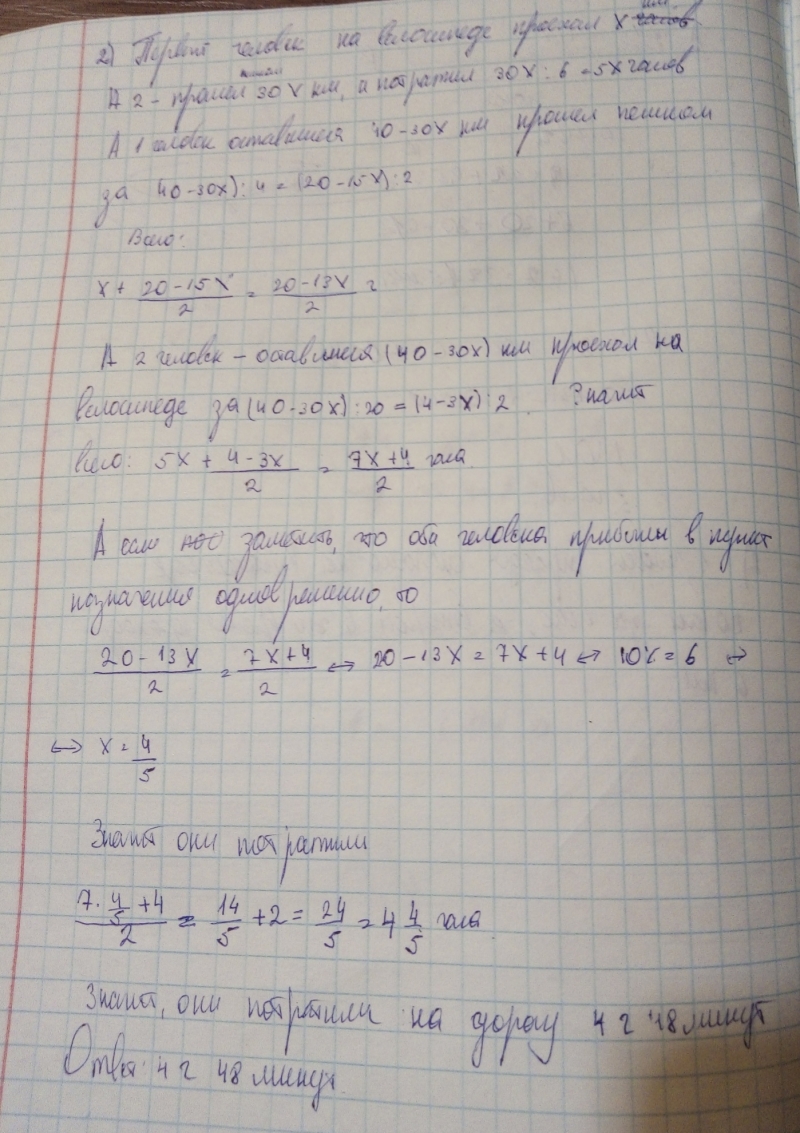 2) Первый человек на велосипеде проехал x км
А 2 - прошёл пешком 30x км, и потратил 30x : 6 = 5x часов
А 1 человек оставшиеся 40-30x км прошел пешком
за (40-30x) : 4 = (20-15x) : 2
Всего:
x + \frac{20-15x}{2} = \frac{20-13x}{2} г
А 2 человек - оставшиеся (40-30x) км проехал на
велосипеде за (40-30x) : 20 = (4-3x) : 2. Значит
всего: 5x + \frac{4-3x}{2} = \frac{7x+4}{2} часа
А если заметить, что оба человека прибыли в пункт
назначения одновременно, то
\frac{20-13x}{2} = \frac{7x+4}{2} ↔ 20-13x = 7x+4 ↔
↔ x = \frac{4}{5}
Значит они потратили
\frac{7 \cdot \frac{4}{5} + 4}{2} = \frac{14}{5} + 2 = \frac{24}{5} = 4\frac{4}{5} часа
Значит, они потратили на дорогу 4 г 48 минут
Ответ: 4 г 48 минут.